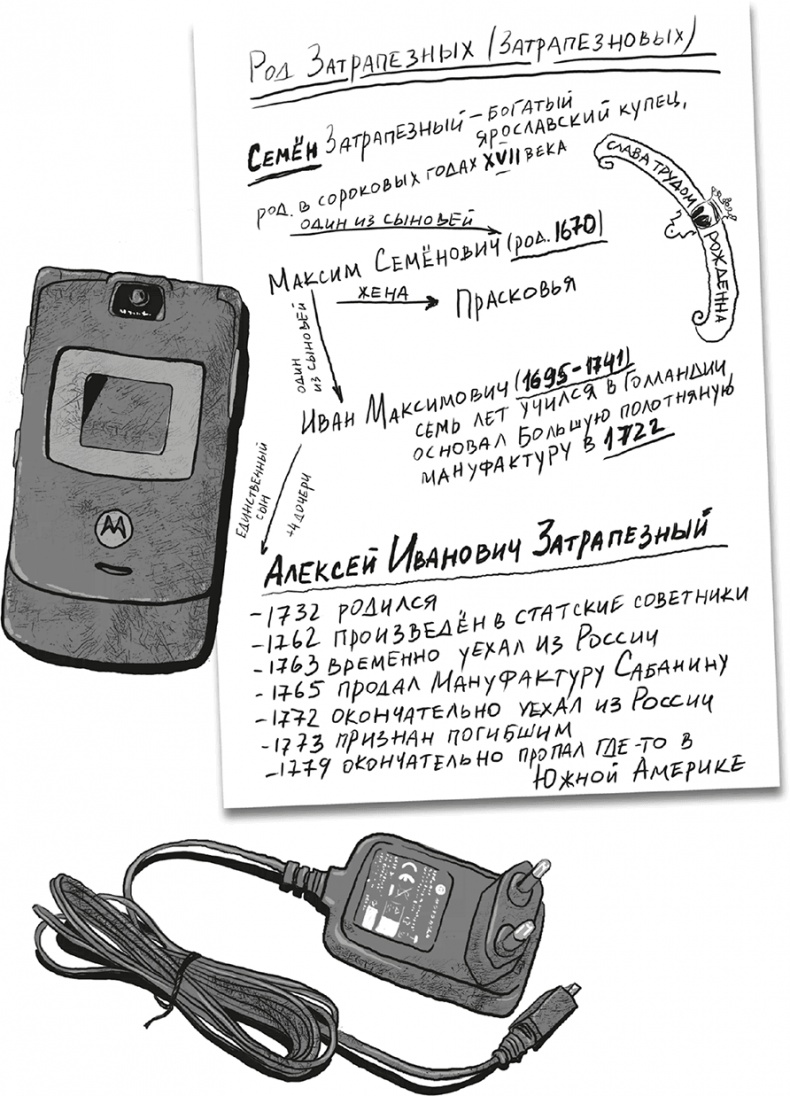 Род Затрапезных (Затрапезновых)
Семён Затрапезный – богатый
ярославский купец,
род. в сороковых годах XVII века
один из сыновей
Максим Семёнович (род. 1670)
жена
Прасковья
один
из сыновей
Иван Максимович (1695-1741)
семь лет учился в Голландии,
основал Большую полотняную
мануфактуру в 1722
единственный
сын
+4 дочери
Алексей Иванович Затрапезный
-1732 родился
-1762 произведён в статские советники
-1763 временно уехал из России
-1765 продал Мануфактуру Сабанину
-1772 окончательно уехал из России
-1773 признан погибшим
-1779 окончательно пропал где-то в
Южной Америке
слава трудом
рожденна
CE